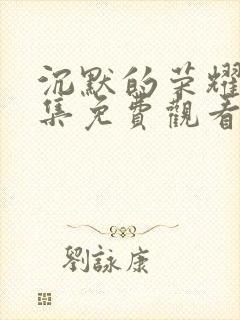 沉默的荣耀
集免費觀看
劉詠康